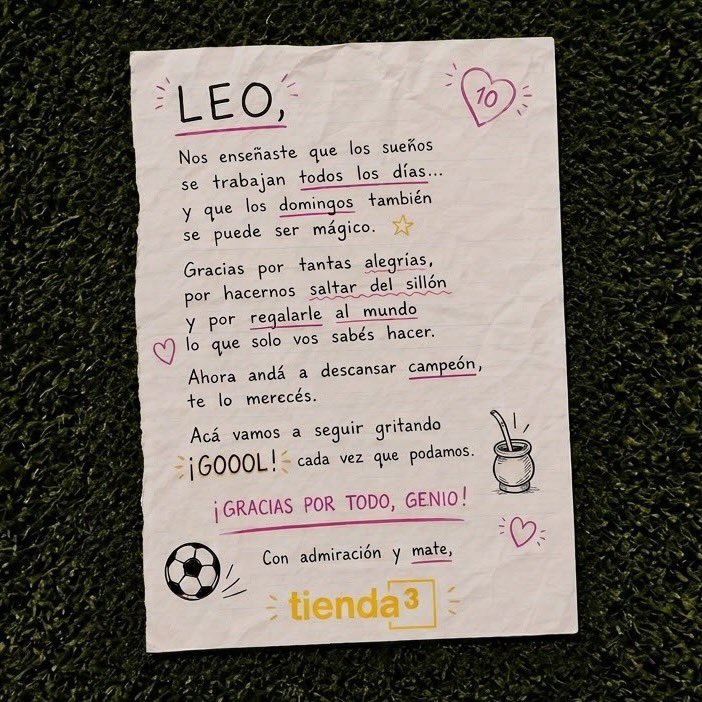 LEO,
10
Nos enseñaste que los sueños
se trabajan todos los días...
y que los domingos también
se puede ser mágico.
Gracias por tantas alegrías,
por hacernos saltar del sillón
y por regalarle al mundo
lo que solo vos sabés hacer.
Ahora andá a descansar campeón,
te lo merecés.
Acá vamos a seguir gritando
¡GOOOL! cada vez que podamos.
¡GRACIAS POR TODO, GENIO!
Con admiración y mate,
tienda³